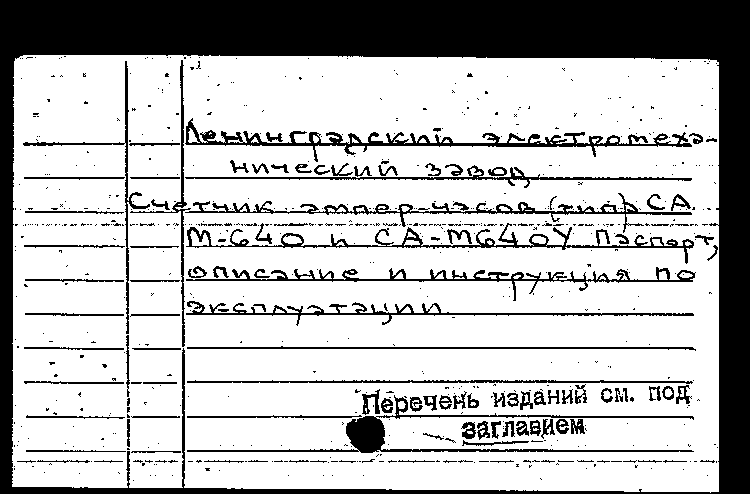 Ленинградский электромеха-
нический завод
Счетчик ампер-часов (тип) СА
М-640 и СА-М640У Паспорт,
описание и инструкция по
эксплуатации
Перечень изданий см. под
заглавием